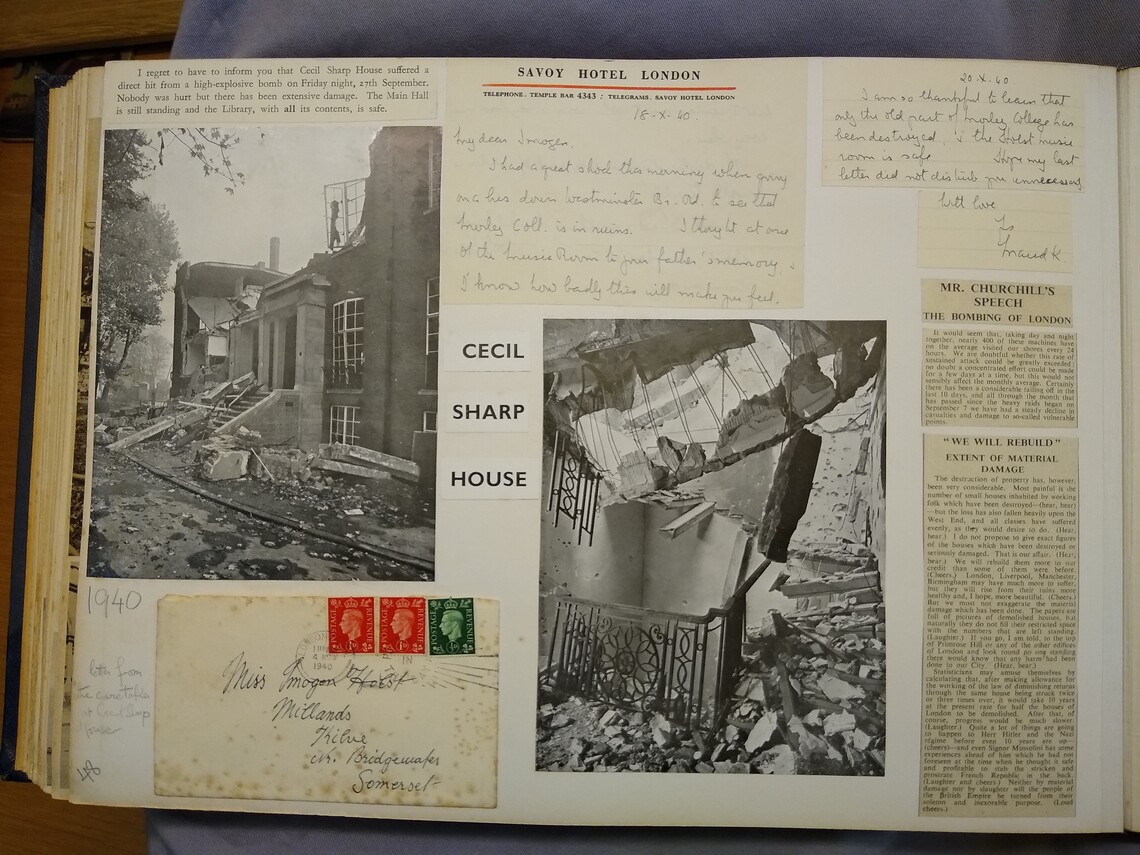 I regret to have to inform you that Cecil Sharp House suffered a
direct hit from a high-explosive bomb on Friday night, 27th September.
Nobody was hurt but there has been extensive damage. The Main Hall
is still standing and the Library, with all its contents, is safe.
SAVOY HOTEL LONDON
TELEPHONE. TEMPLE BAR 4343 : TELEGRAMS. SAVOY HOTEL LONDON
18-X-40.
My dear Imogen,
I had a great shock this morning when going
on a bus down Westminster Br. Rd. to see that
Morley Coll. is in ruins. I thought at once
of the Music Room to your father's memory &
I know how badly this will make you feel.
20-X-40
I am so thankful to learn that
only the old part of Morley College has
been destroyed & the Holst music
room is safe. Hope my last
letter did not disturb you unnecessarily
With love
Maud K.
CECIL
SHARP
HOUSE
MR. CHURCHILL'S
SPEECH
THE BOMBING OF LONDON
It would seem that, taking day and night
together, nearly 400 of these machines have
on the average visited our shores every 24
hours. We are doubtful whether this rate of
sustained attack could be greatly exceeded;
no doubt a concentrated effort could be made
for a few days at a time, but this would not
sensibly affect the monthly average. Certainly
there has been a considerable falling off in the
last 10 days, and all through the month that
has passed since the heavy raids began on
September 7 we have had a steady decline in
casualties and damage to so-called vulnerable
points.
"WE WILL REBUILD"
EXTENT OF MATERIAL
DAMAGE
The destruction of property has, however,
been very considerable. Most painful is the
number of small houses inhabited by working
folk which have been destroyed—(hear, hear)
—but the loss has also fallen heavily upon the
West End, and all classes have suffered
evenly, as they would desire to do. (Hear,
hear.) I do not propose to give exact figures
of the houses which have been destroyed or
seriously damaged. That is our affair. (Hear,
hear.) We will rebuild them more to our
credit than some of them were before.
(Cheers.) London, Liverpool, Manchester,
Birmingham may have much more to suffer,
but they will rise from their ruins more
healthy and, I hope, more beautiful. (Cheers.)
But we must not exaggerate the material
damage which has been done. The papers are
full of pictures of demolished houses, but
naturally they do not fill their restricted space
with the numbers that are left standing.
(Laughter.) If you go, I am told, to the top
of Primrose Hill or any of the other edifices
of London and look round no one standing
there would know that any harm had been
done to our City. (Hear, hear.)
Statisticians may amuse themselves by
calculating that, after making allowance for
the working of the law of diminishing returns
through the same house being struck twice
or three times over, it would take 10 years
at the present rate for half the houses of
London to be demolished. After that, of
course, progress would be much slower.
(Laughter.) Quite a lot of things are going
to happen to Herr Hitler and the Nazi
régime before even 10 years are up—
(cheers)—and even Signor Mussolini has some
experiences ahead of him which he had not
foreseen at the time when he thought it safe
and profitable to stab the stricken and
prostrate French Republic in the back.
(Laughter and cheers.) Neither by material
damage nor by slaughter will the people of
the British Empire be turned from their
solemn and inexorable purpose. (Loud
cheers.)
1940
letter from
the caretaker
at Cecil Sharp
House
POSTAGE REVENUE 1D
POSTAGE REVENUE 1D
POSTAGE REVENUE
1940
Miss Imogen Holst
Millands
Kilve
Nr. Bridgewater
Somerset